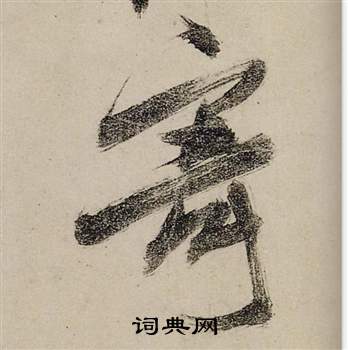 寄
词典网